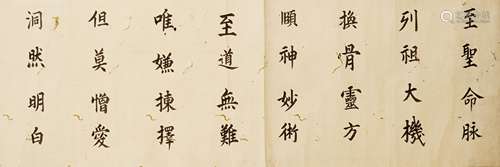 至聖命脉
列祖大機
換骨靈方
頤神妙術
至道無難
唯嫌揀擇
但莫憎愛
洞然明白